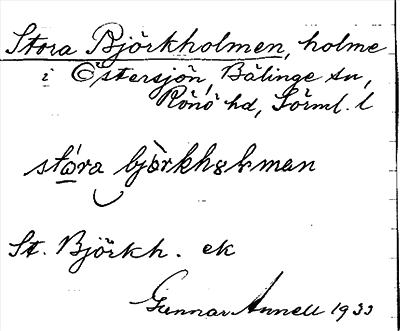 Stora Björkholmen, holme
i Östersjön, Bälinge sn,
Rönö hd, Sörml. l
stóra bjòrkhɷlman
St. Björkh. ek
Gunnar Annell 1933